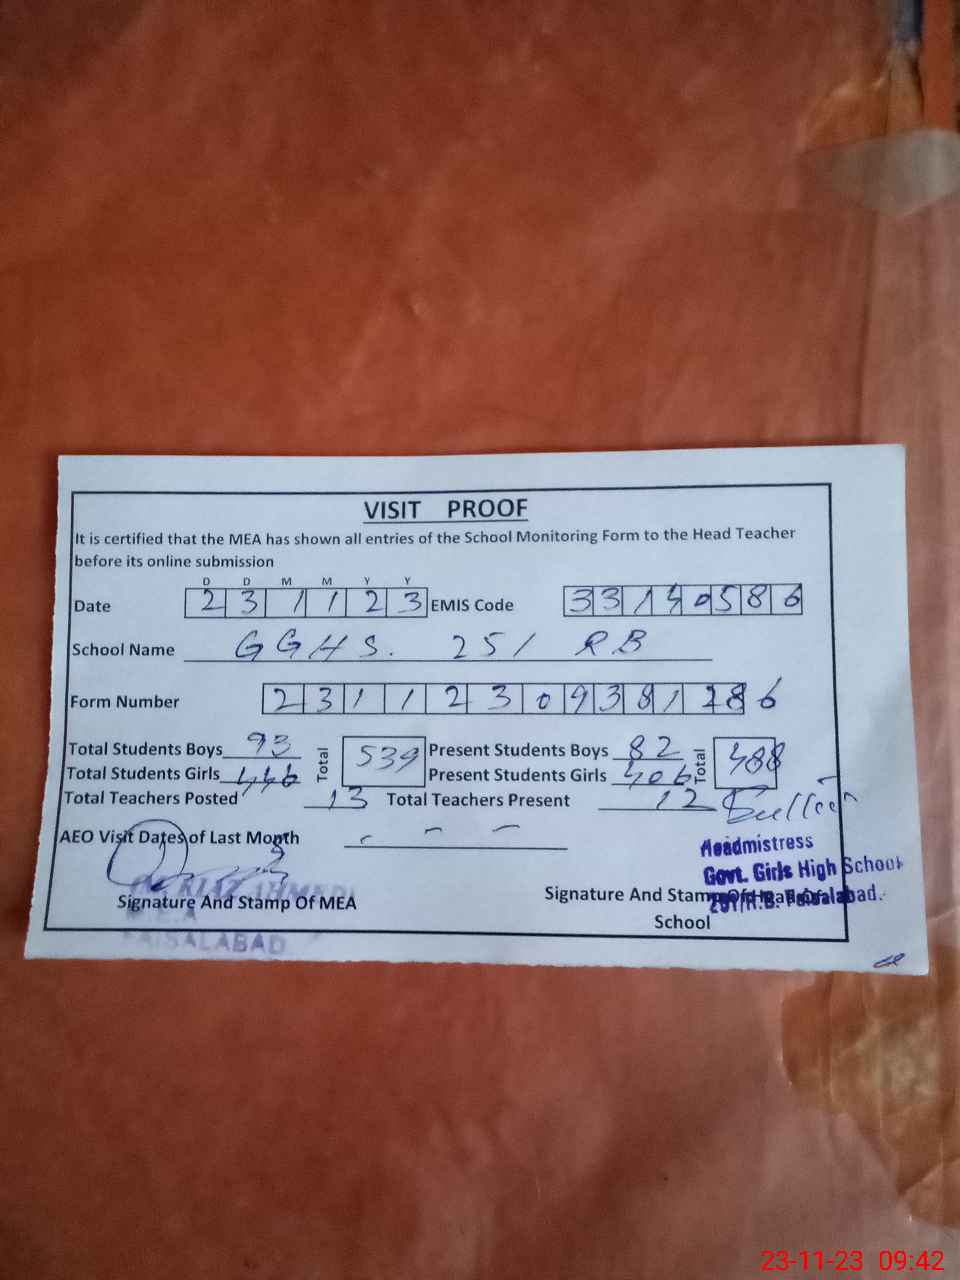 VISIT PROOF
It is certified that the MEA has shown all entries of the School Monitoring Form to the Head Teacher
before its online submission
D D M M Y Y
Date 2 3 1 1 2 3 EMIS Code 3 3 1 4 0 5 8 6
School Name GGHS. 251 RB
Form Number 2 3 1 1 2 3 0 9 3 8 1 2 8 6
Total Students Boys 93 Total 539 Present Students Boys 82 Total 488
Total Students Girls 446 Present Students Girls 406
Total Teachers Posted 13 Total Teachers Present 12
AEO Visit Dates of Last Month - - -
Headmistress
Govt. Girls High School
251/R.B. Faisalabad.
Signature And Stamp Of MEA
Signature And Stamp Of Head Of
School
M.E.A
FAISALABAD
23-11-23 09:42